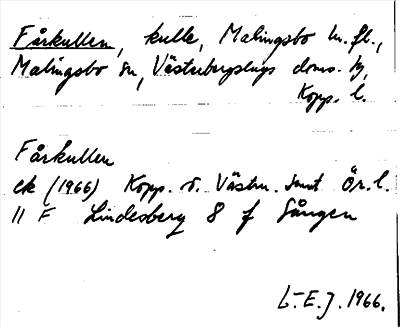 Fårkullen, kulle, Malingsbo h. fl.,
Malingsbo sn, Västerbergslags doms. tg,
Kopp. l.
Fårkullen
ek (1966) Kopp. o. Västm. samt Ör. l.
11 F Lindesberg 8 f Gången
L-E. J. 1966.